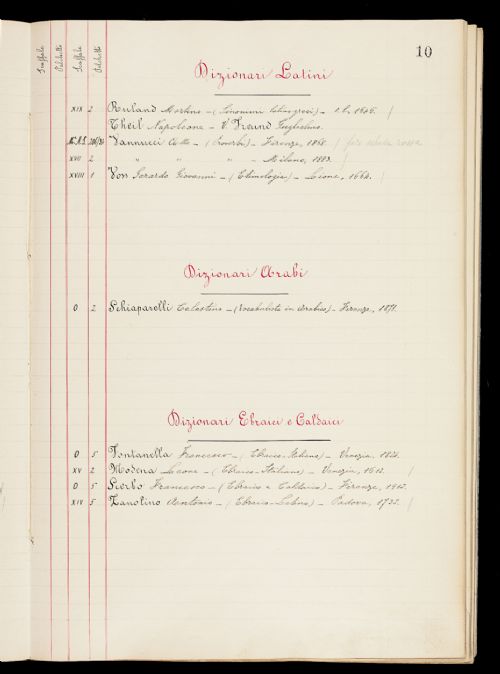 10
Scaffale Palchetti Scaffale Palchetti
Dizionari Latini
XIX 2 Ruland Martino – (Sinonimi latino greci) –
Theil Napoleone – V. Freund Guglielmo.
Vannucci Atto – (Proverbi) – Firenze, 1868. /
XVII 2 " " " – Milano, 1883. /
XVIII 1 Von Gerardo Giovanni – (Etimologia) – Lione, 1664. /
Dizionari Arabi
O 2 Schiaparelli Celestino – (Vocabulista in Arabico) – Firenze, 1871.
Dizionari Ebraici e Caldaici
O 5 Fontanella Francesco – (Ebraico-Italiano) – Venezia, 1824.
XV 2 Modena Leone – (Ebraico-Italiano) – Venezia, 1612. /
O 5 Francesco – (Ebraico e Caldaico) – Firenze,
XIV 5 Zanolino Antonio – (Ebraico-Latino) – Padova, 1732. /